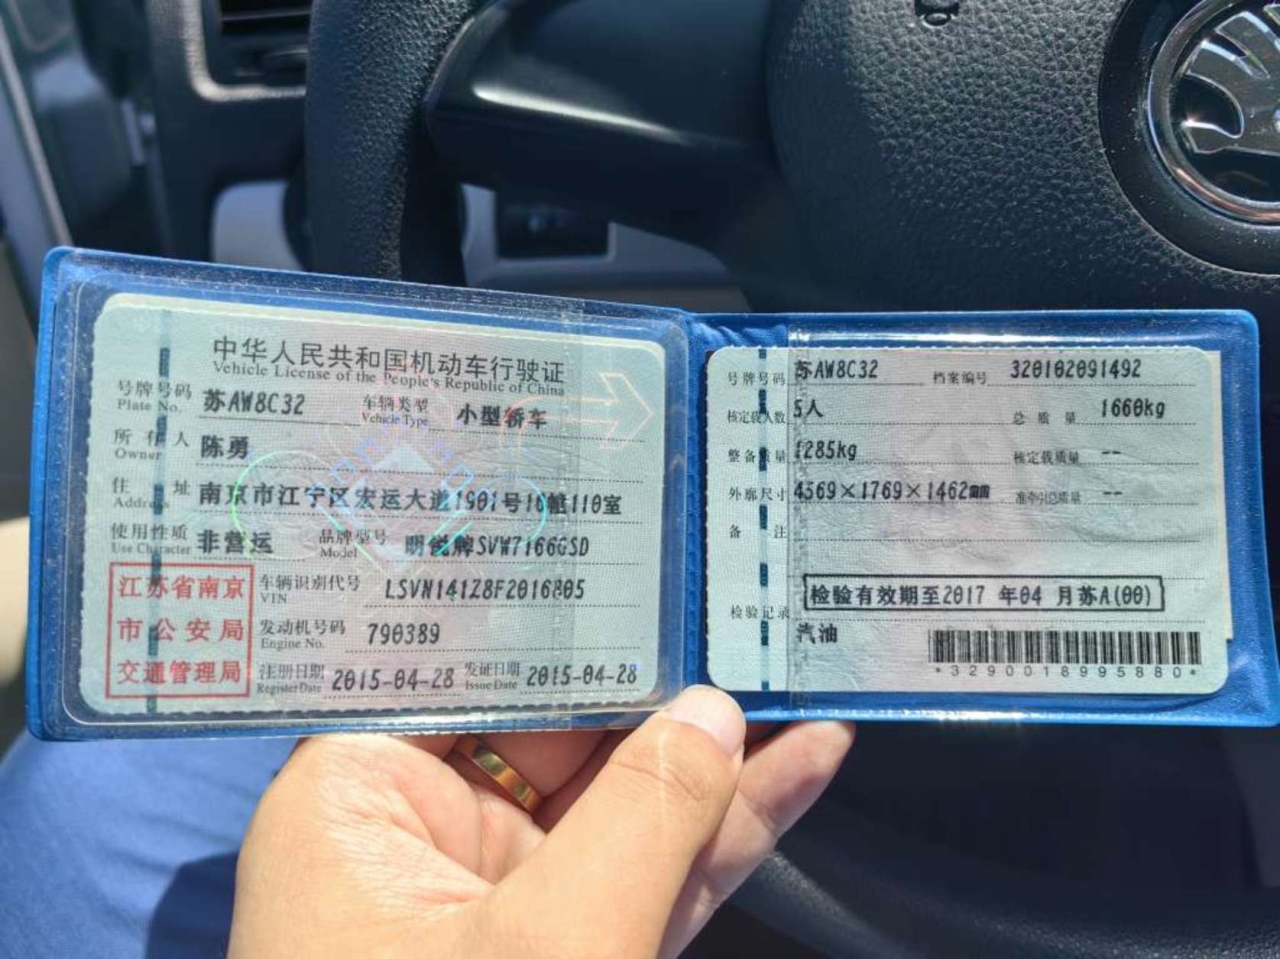 中华人民共和国机动车行驶证
Vehicle License of the People's Republic of China
号牌号码 苏AW8C32 车辆类型 小型轿车
Plate No. Vehicle Type
所有人 陈勇
Owner
住址 南京市江宁区宏运大道1901号16幢110室
Address
使用性质 非营运 品牌型号 明锐牌SVW7166GSD
Use Character Model
江苏省南京
市公安局
交通管理局
车辆识别代号 LSVN141Z8F2016805
VIN
发动机号码 790389
Engine No.
注册日期 2015-04-28 发证日期 2015-04-28
Register Date Issue Date
号牌号码 苏AW8C32 档案编号 320102091492
核定载人数 5人 总质量 1660kg
整备质量 1285kg 核定载质量 --
外廓尺寸 4569×1769×1462mm 准牵引总质量 --
备注
检验有效期至2017 年04 月苏A(00)
检验记录
汽油
*3290018995880*